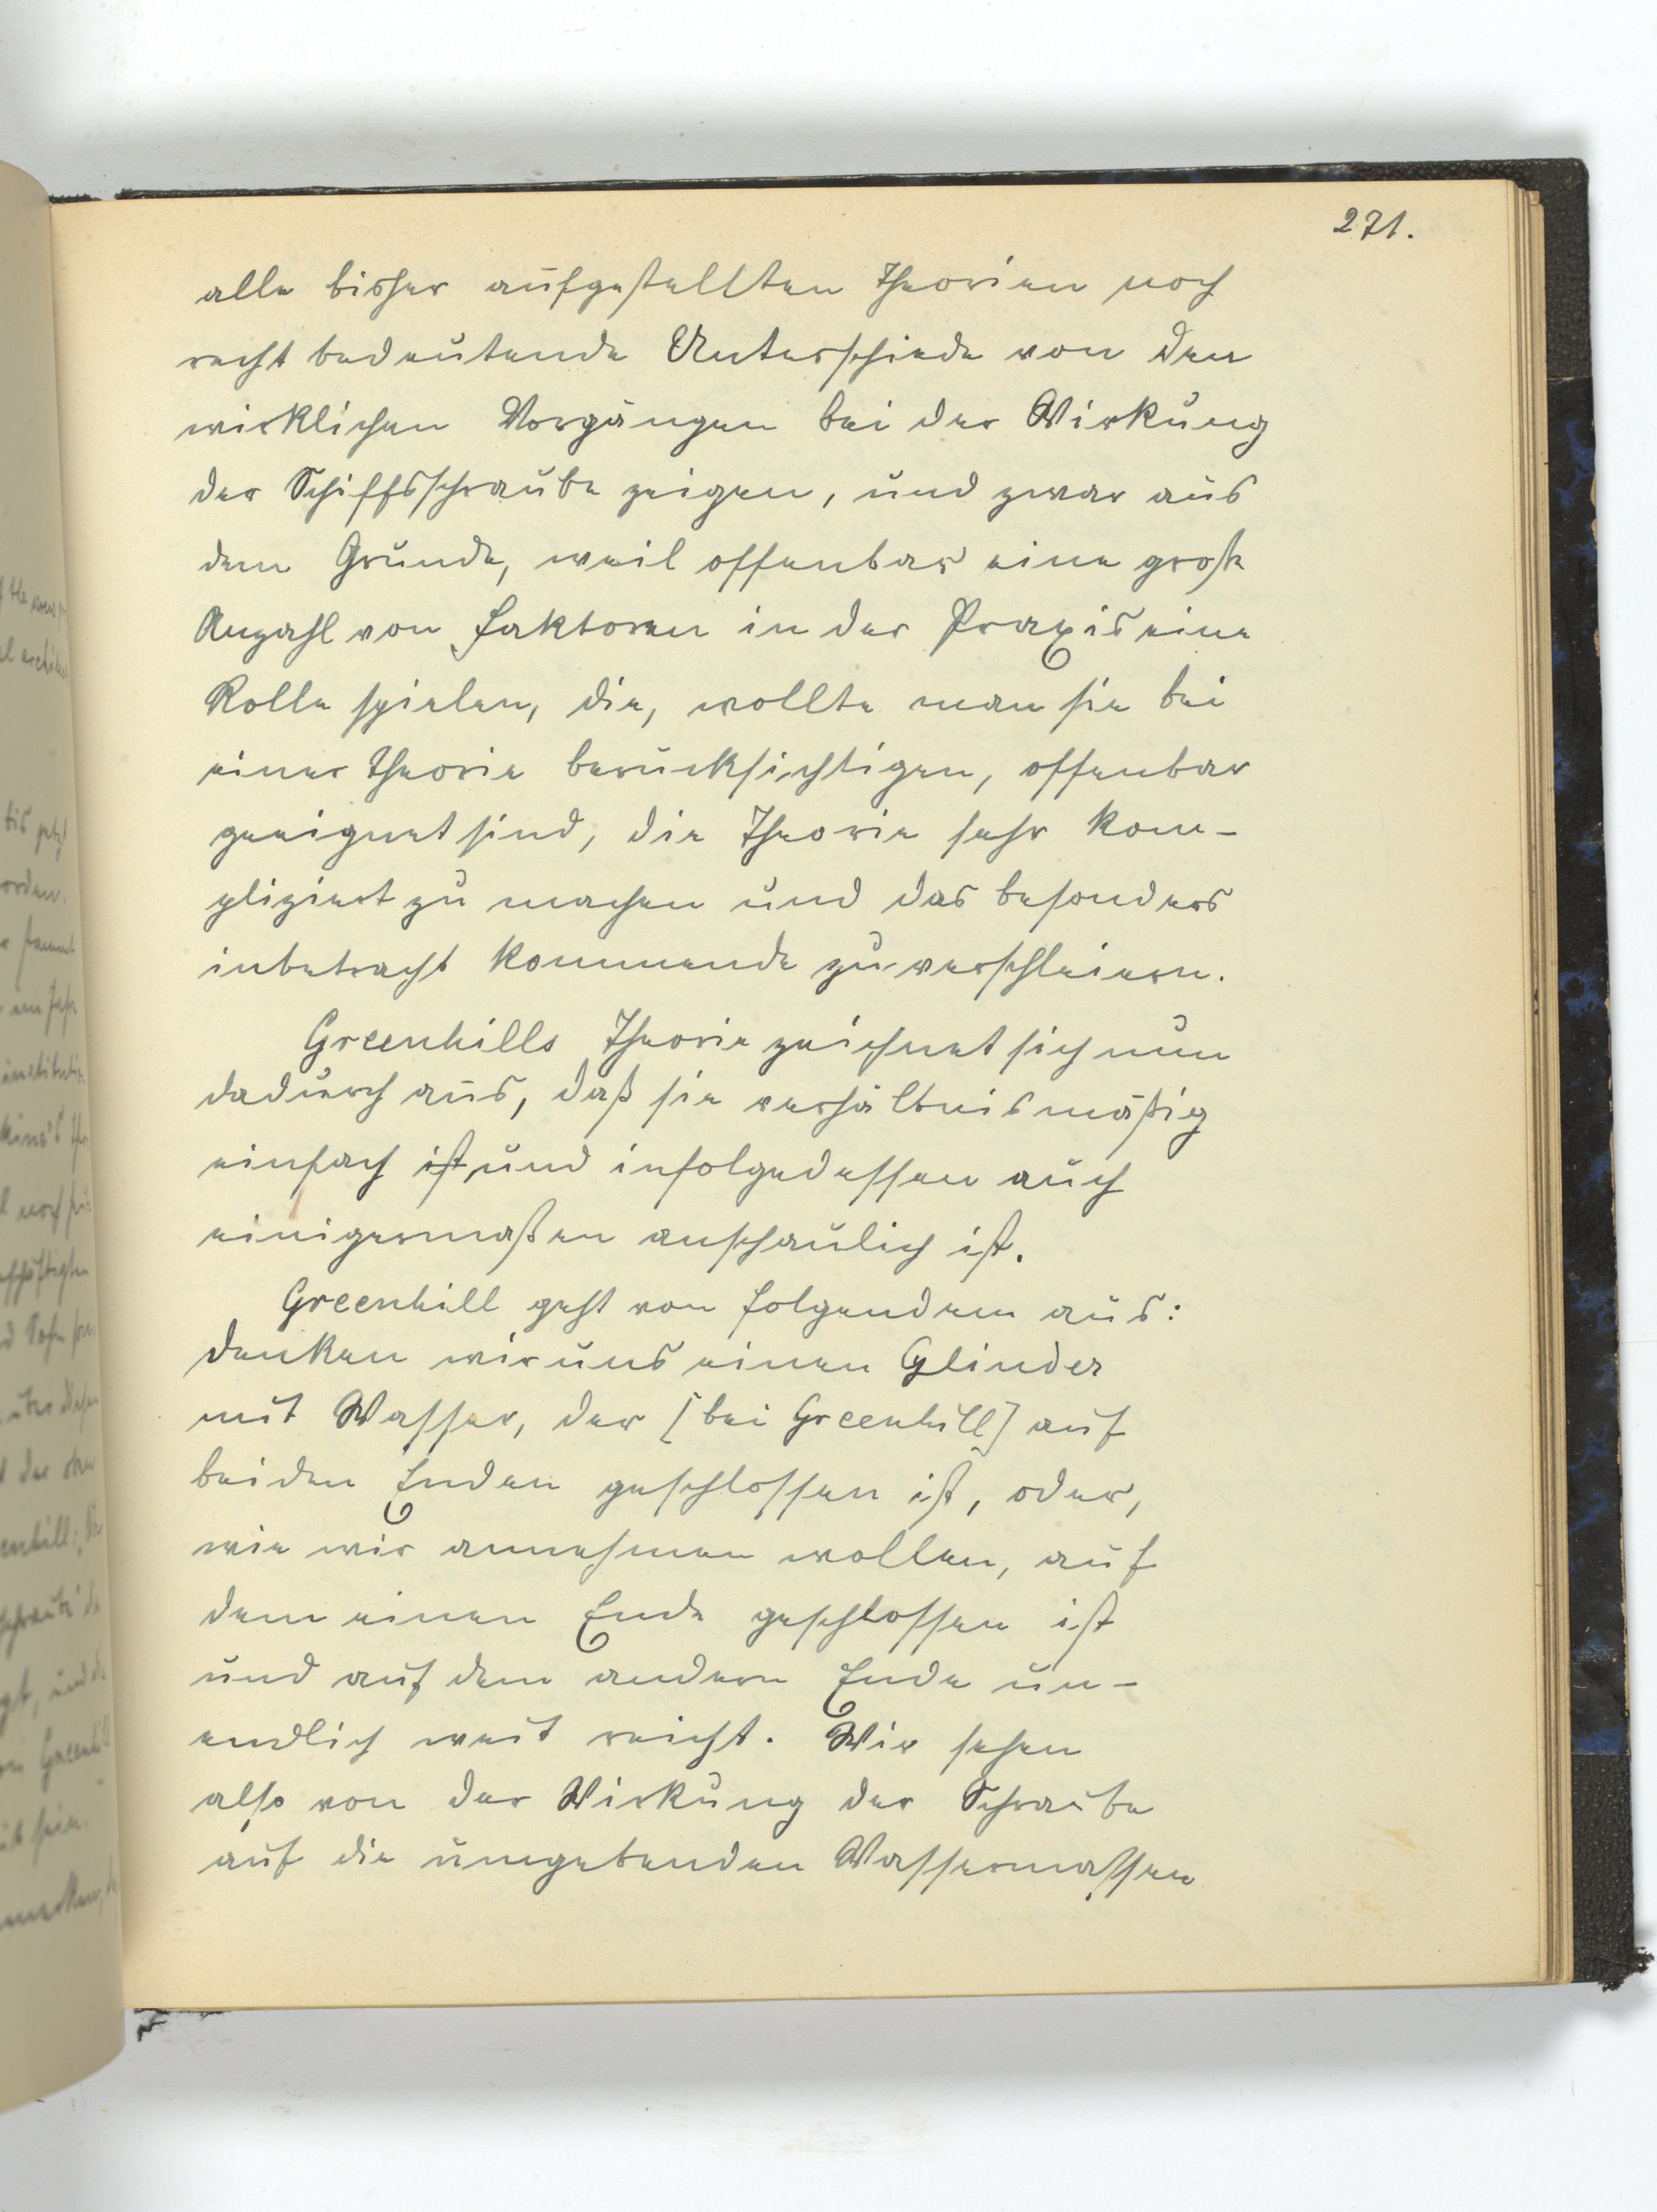 271.
alle bisher aufgestellten Theorien noch
recht bedeutende Unterschiede von den
wirklichen Vorgängen bei der Wirkung
der Schiffsschraube zeigen, und zwar aus
dem Grunde, weil offenbar eine große
Anzahl von Faktoren in der Praxis eine
Rolle spielen, die, wollte man sie bei
einer Theorie berücksichtigen, offenbar
geeignet sind, die Theorie sehr kom-
pliziert zu machen und das besonders
inbetracht kommende zu verschleiern.
Greenhills Theorie zeichnet sich nun
dadurch aus, daß sie verhältnismäßig
einfach ist und infolgedessen auch
einigermaßen anschaulich ist.
Greenhill geht von folgendem aus:
denken wir uns einen Cylinder
mit Wasser, der [bei Greenhill] auf
beiden Enden geschlossen ist, oder,
wie wir annehmen wollen, auf
dem einen Ende geschlossen ist
und auf dem andern Ende un-
endlich weit reicht. Wir sehen
also von der Wirkung der Schraube
auf die umgebenden Wassermassen